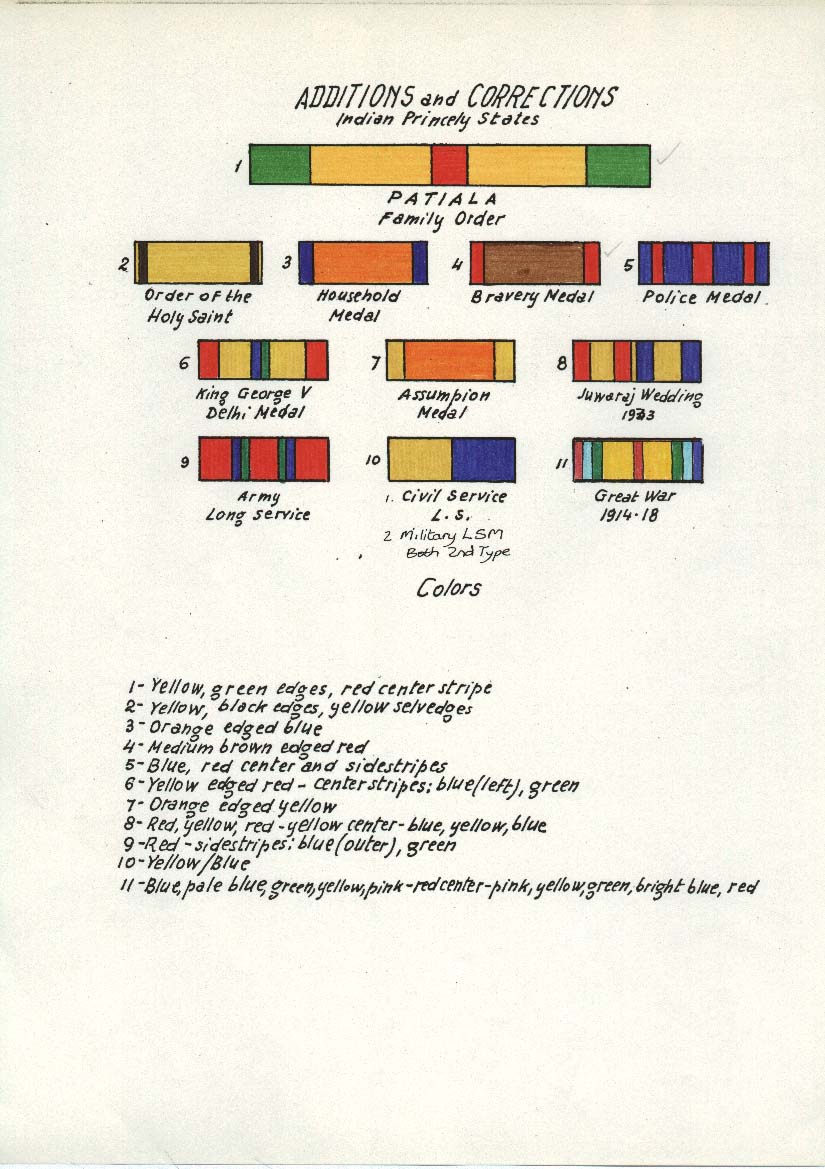 ADDITIONS and CORRECTIONS
Indian Princely States
1
PATIALA
Family Order
2 3 4 5
Order of the Holy Saint
Household Medal
Bravery Medal
Police Medal.
6 7 8
King George V Delhi Medal
Assumpion Medal
Juwaraj Wedding 1933
9 10 11
Army Long Service
1. Civil Service L.S.
2 Military LSM
Both 2nd Type
Great War 1914-18
Colors
1- Yellow, green edges, red center stripe
2- Yellow, black edges, yellow selvedges
3- Orange edged blue
4- Medium brown edged red
5- Blue, red center and sidestripes
6- Yellow edged red - center stripes: blue (left), green
7- Orange edged yellow
8- Red, yellow, red - yellow center - blue, yellow, blue
9- Red - sidestripes: blue (outer), green
10- Yellow/Blue
11- Blue, pale blue, green, yellow, pink - red center - pink, yellow, green, bright blue, red